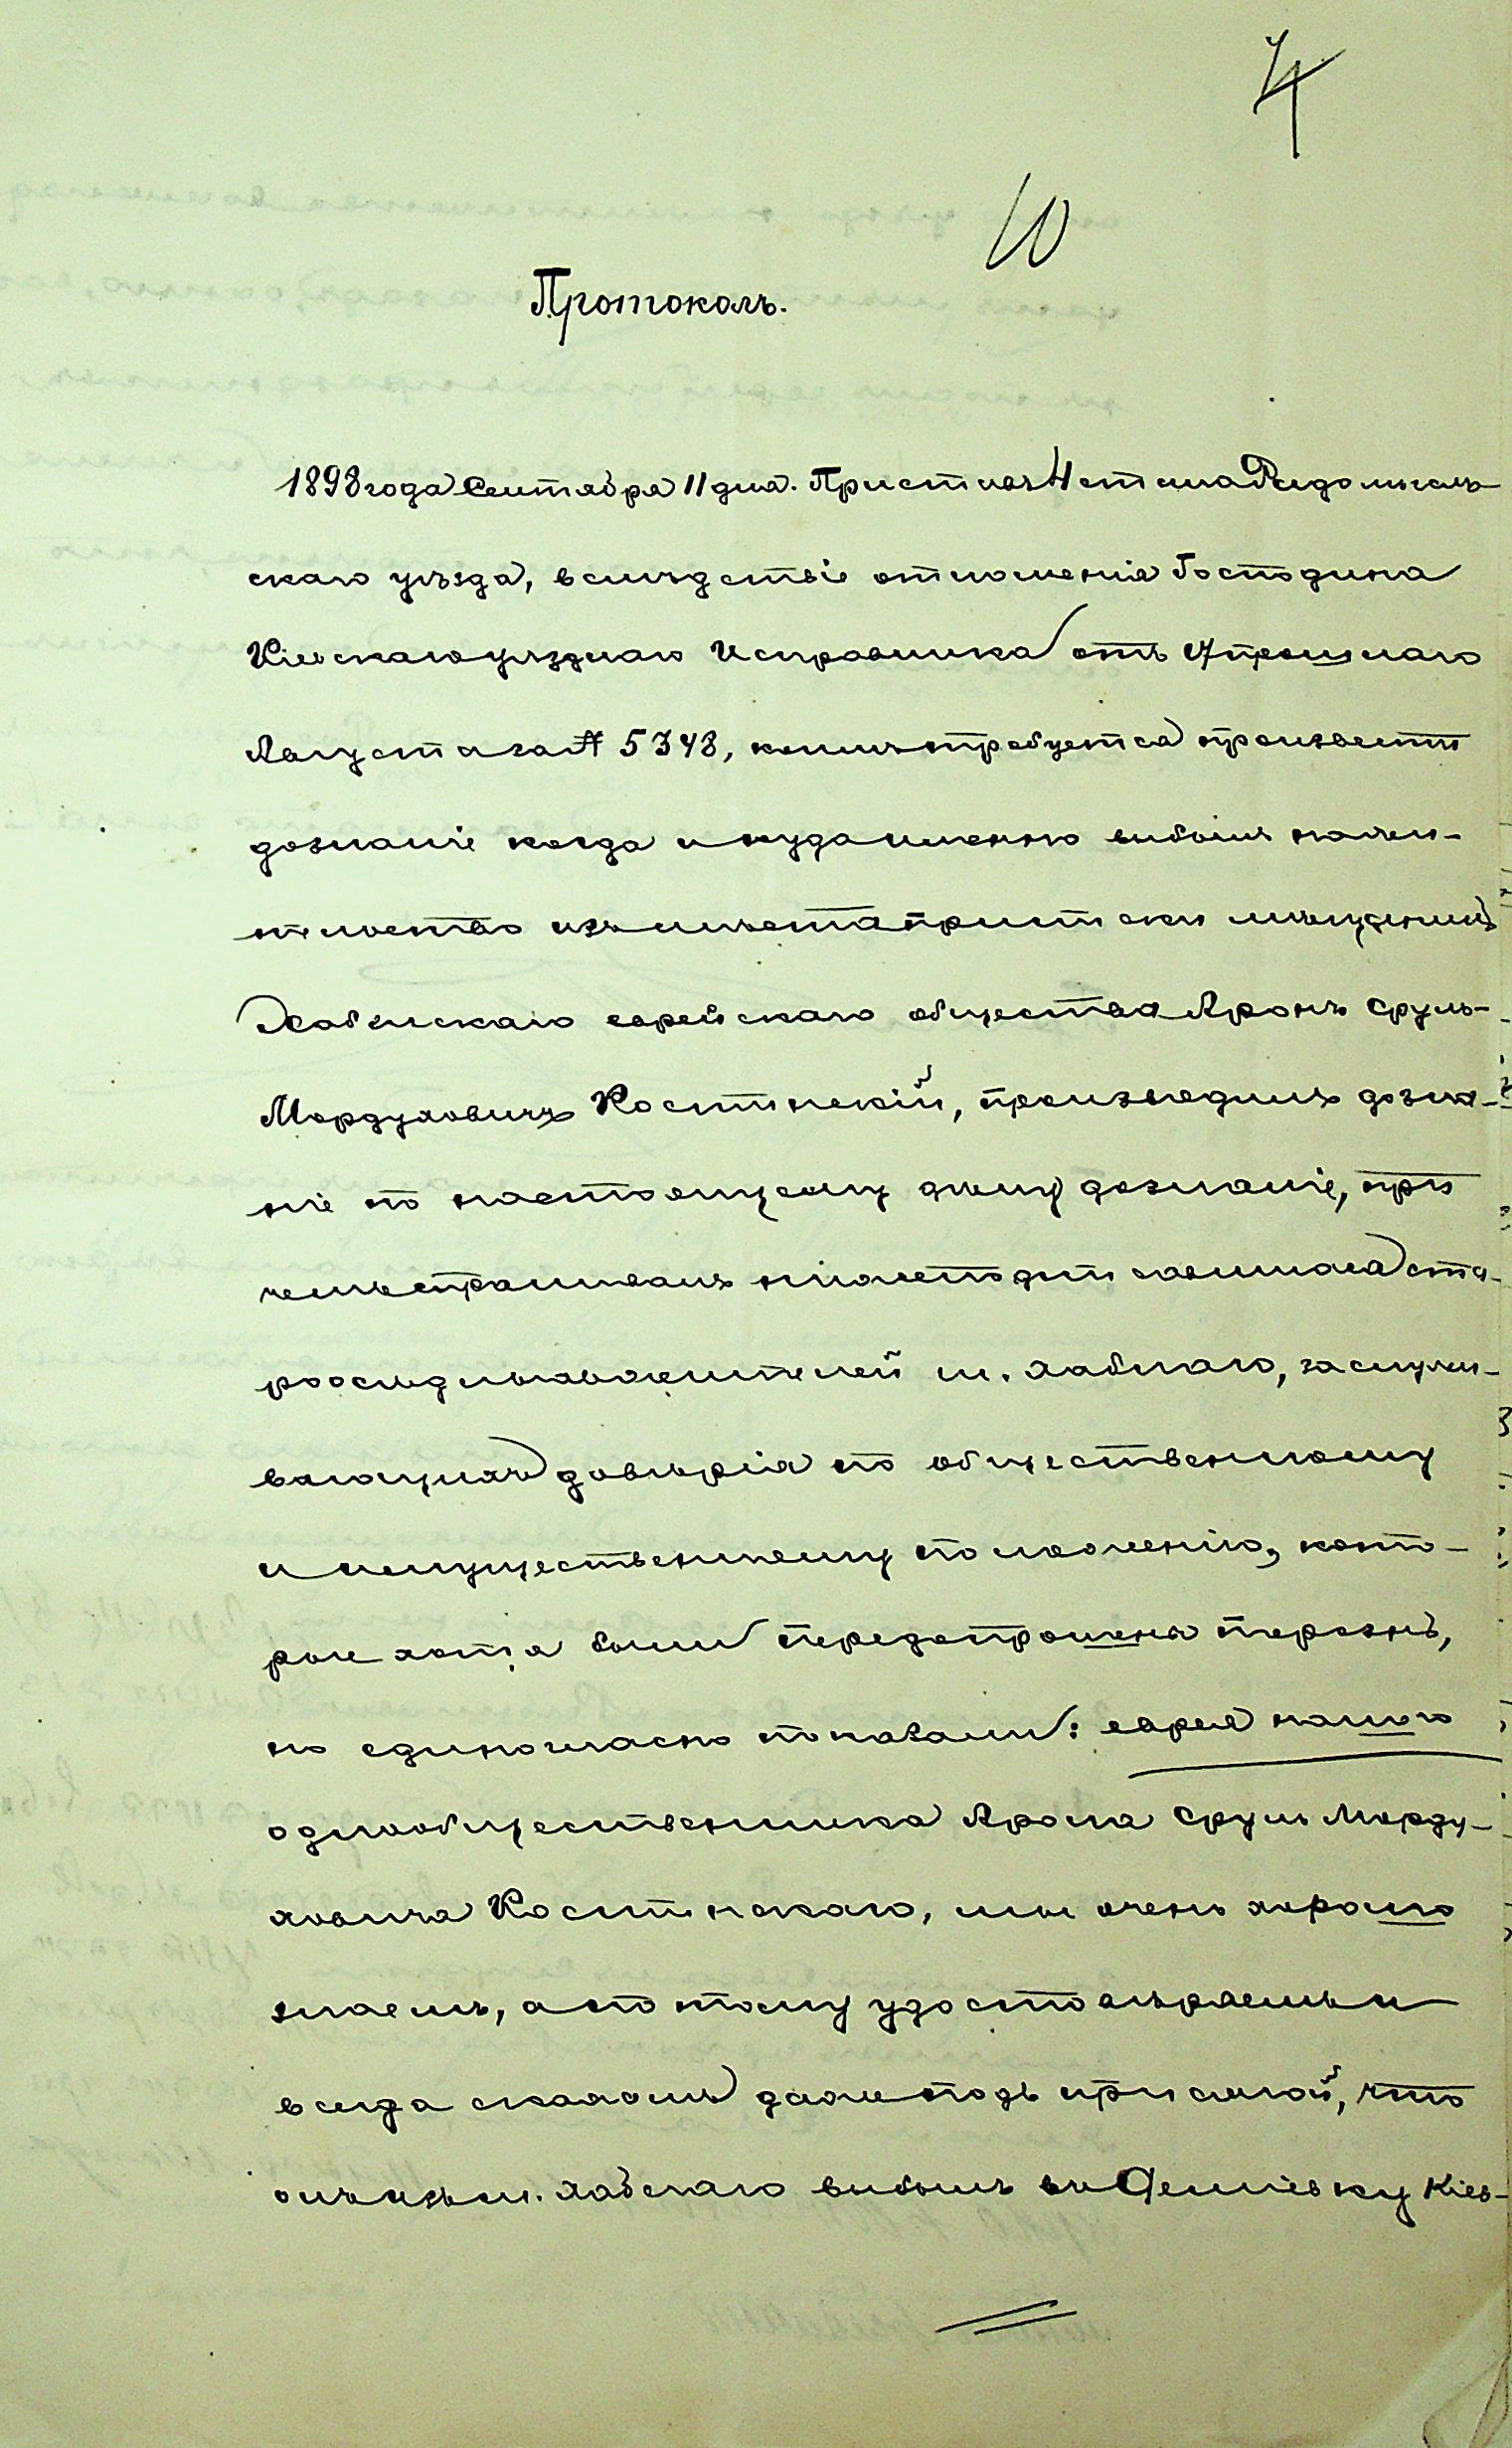 4
10
Протоколъ.
1898 года Сентября 11 дня. Приставъ 4 стана Радомысль-
скаго уѣзда, вслѣдствіе отношенія Господина
Кіевскаго уѣзднаго Исправника отъ 4 прошлаго
Августа за № 5348, коимъ требуется произвести
дознаніе когда и куда именно выбылъ на жи-
тельство изъ мѣста приписки мѣщанинъ
Хабенскаго еврейскаго общества Аронъ Сруль-
Мордуховичъ Костинскій, произведилъ дозна-
ніе по настоящему дѣлу дознаніе, при
чемъ спрашивалъ нижеподписавшихся ста-
роосѣдлыхъ жителей м. Хабнаго, заслужи-
вающихъ довѣрія по общественному
и имущественному положенію, кото-
рые хотя были передопрошены порознь,
но единогласно показали: еврея нашего
однообщественника Арона Сруль Морду-
ховича Костинскаго, мы очень хорошо
знаемъ, а по тому удостовѣряемъ и
всегда скажемъ даже подъ присягой, что
онъ изъ м. Хабнаго выбылъ въ Деміевку Кіев-